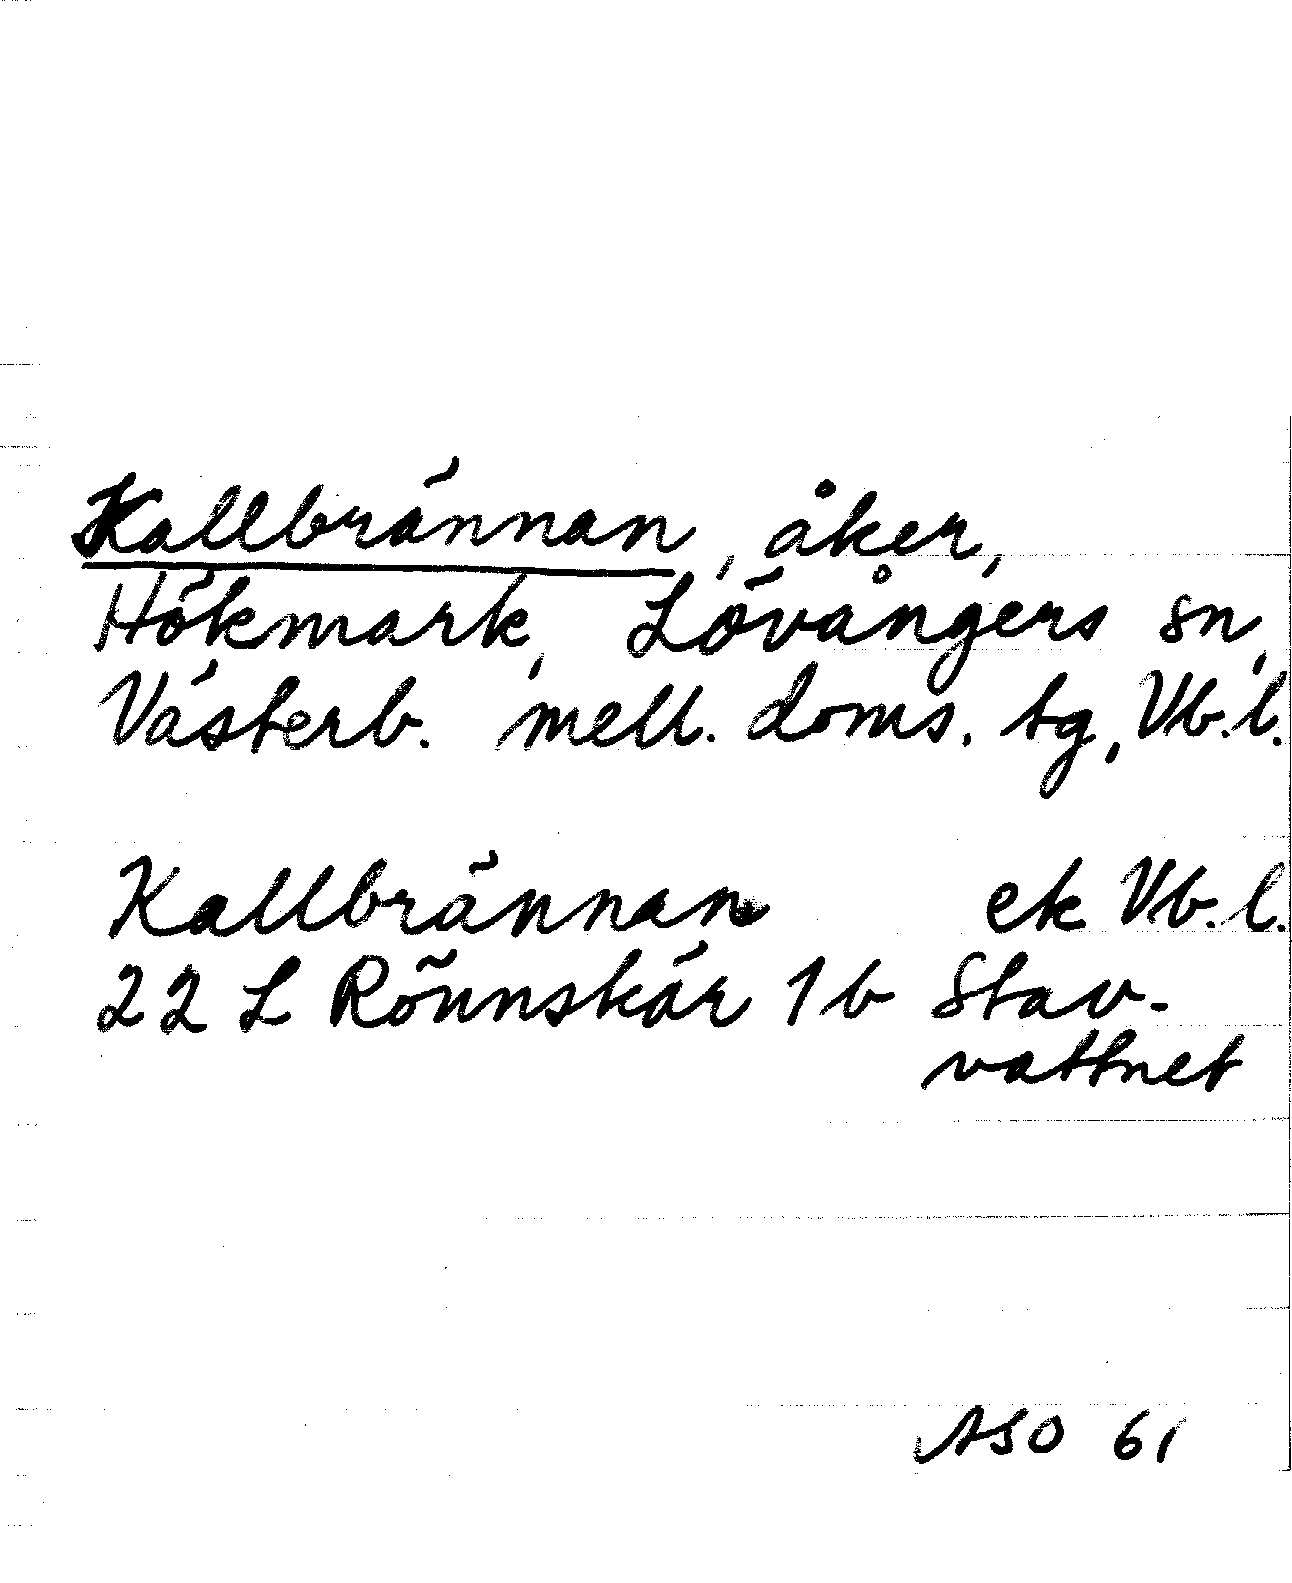 Kallbrännan, åker,
Hökmark, Lövångers sn,
Västerb. mell. doms. tg, Vb.l.
Kallbrännan ek Vb.l.
22 L Rönnskär 1 b Stav-
vattnet
ASO 61